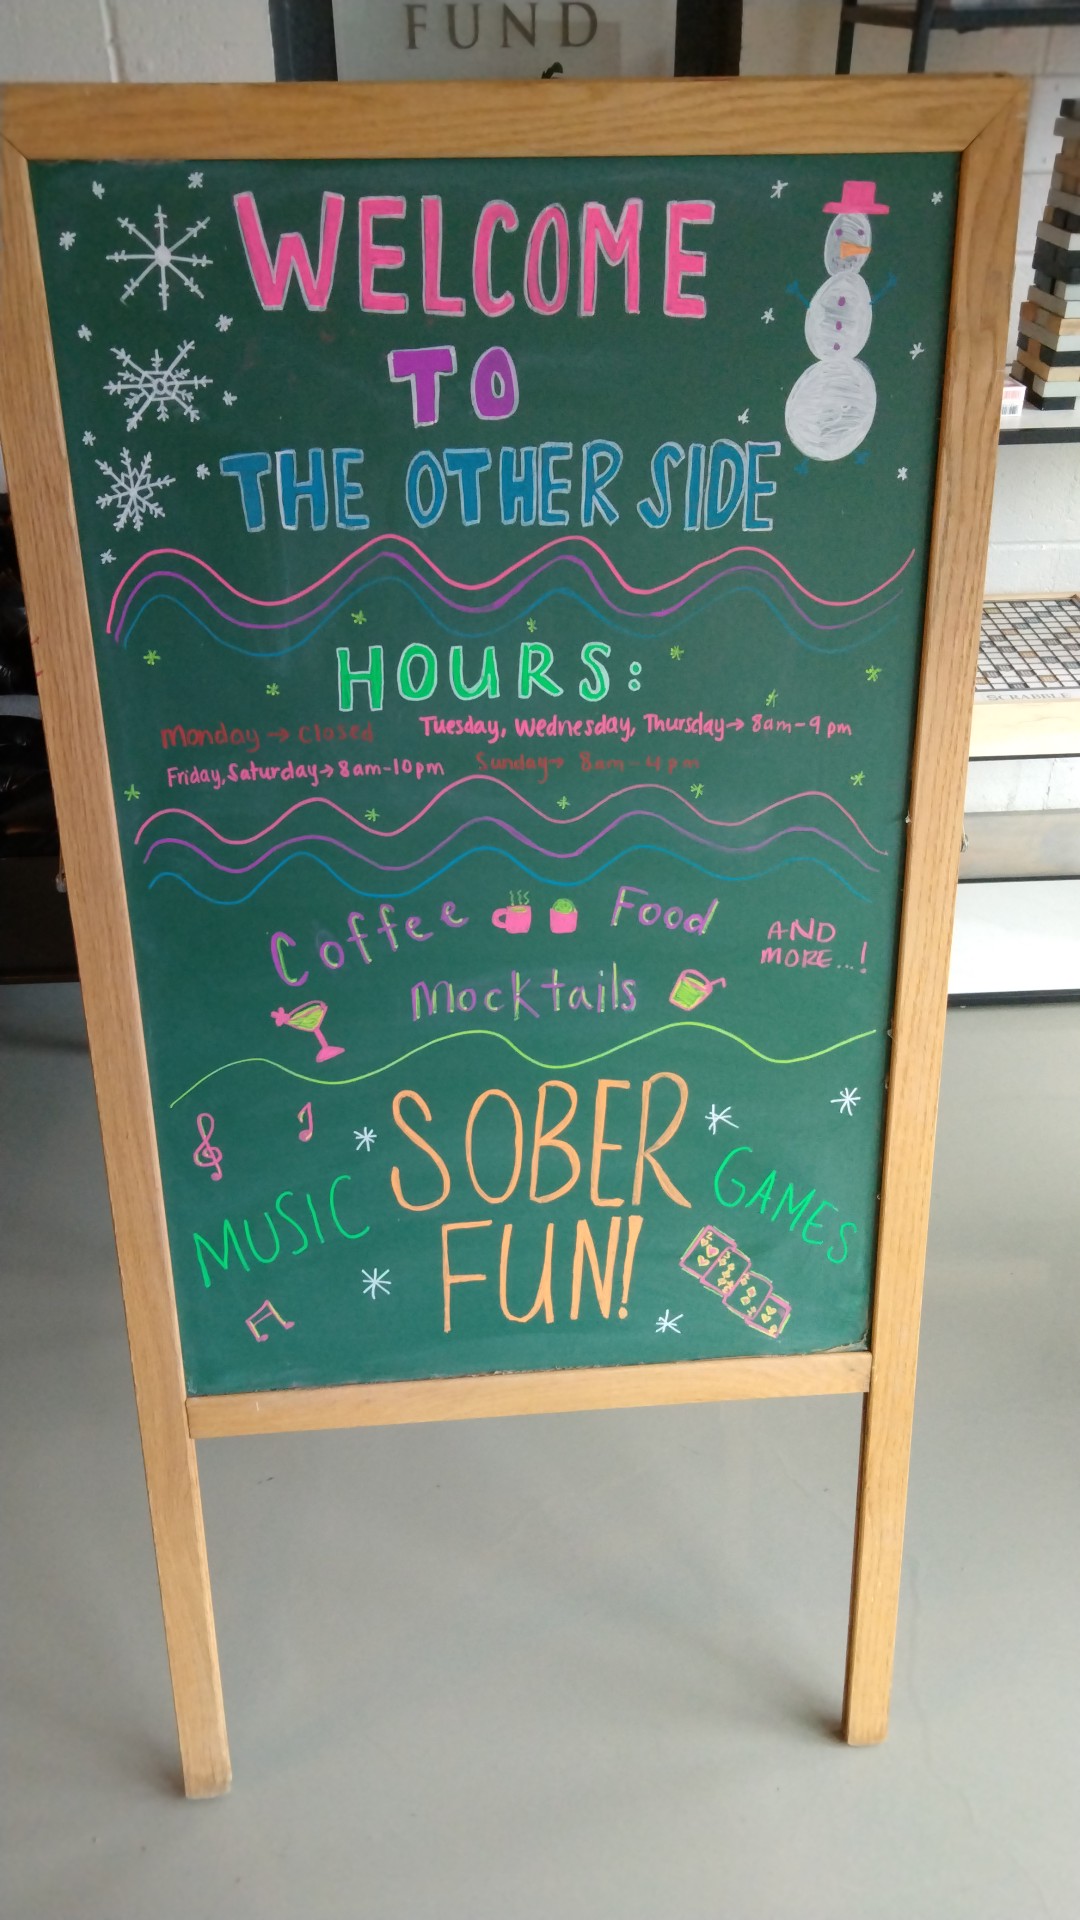 FUND
WELCOME
TO
THE OTHER SIDE
HOURS:
Monday → Closed Tuesday, Wednesday, Thursday → 8am-9pm
Friday, Saturday → 8am-10pm Sunday → 8am-4pm
Coffee Food
AND
MORE...!
Mocktails
SOBER
FUN!
MUSIC
GAMES
SCRABBLE